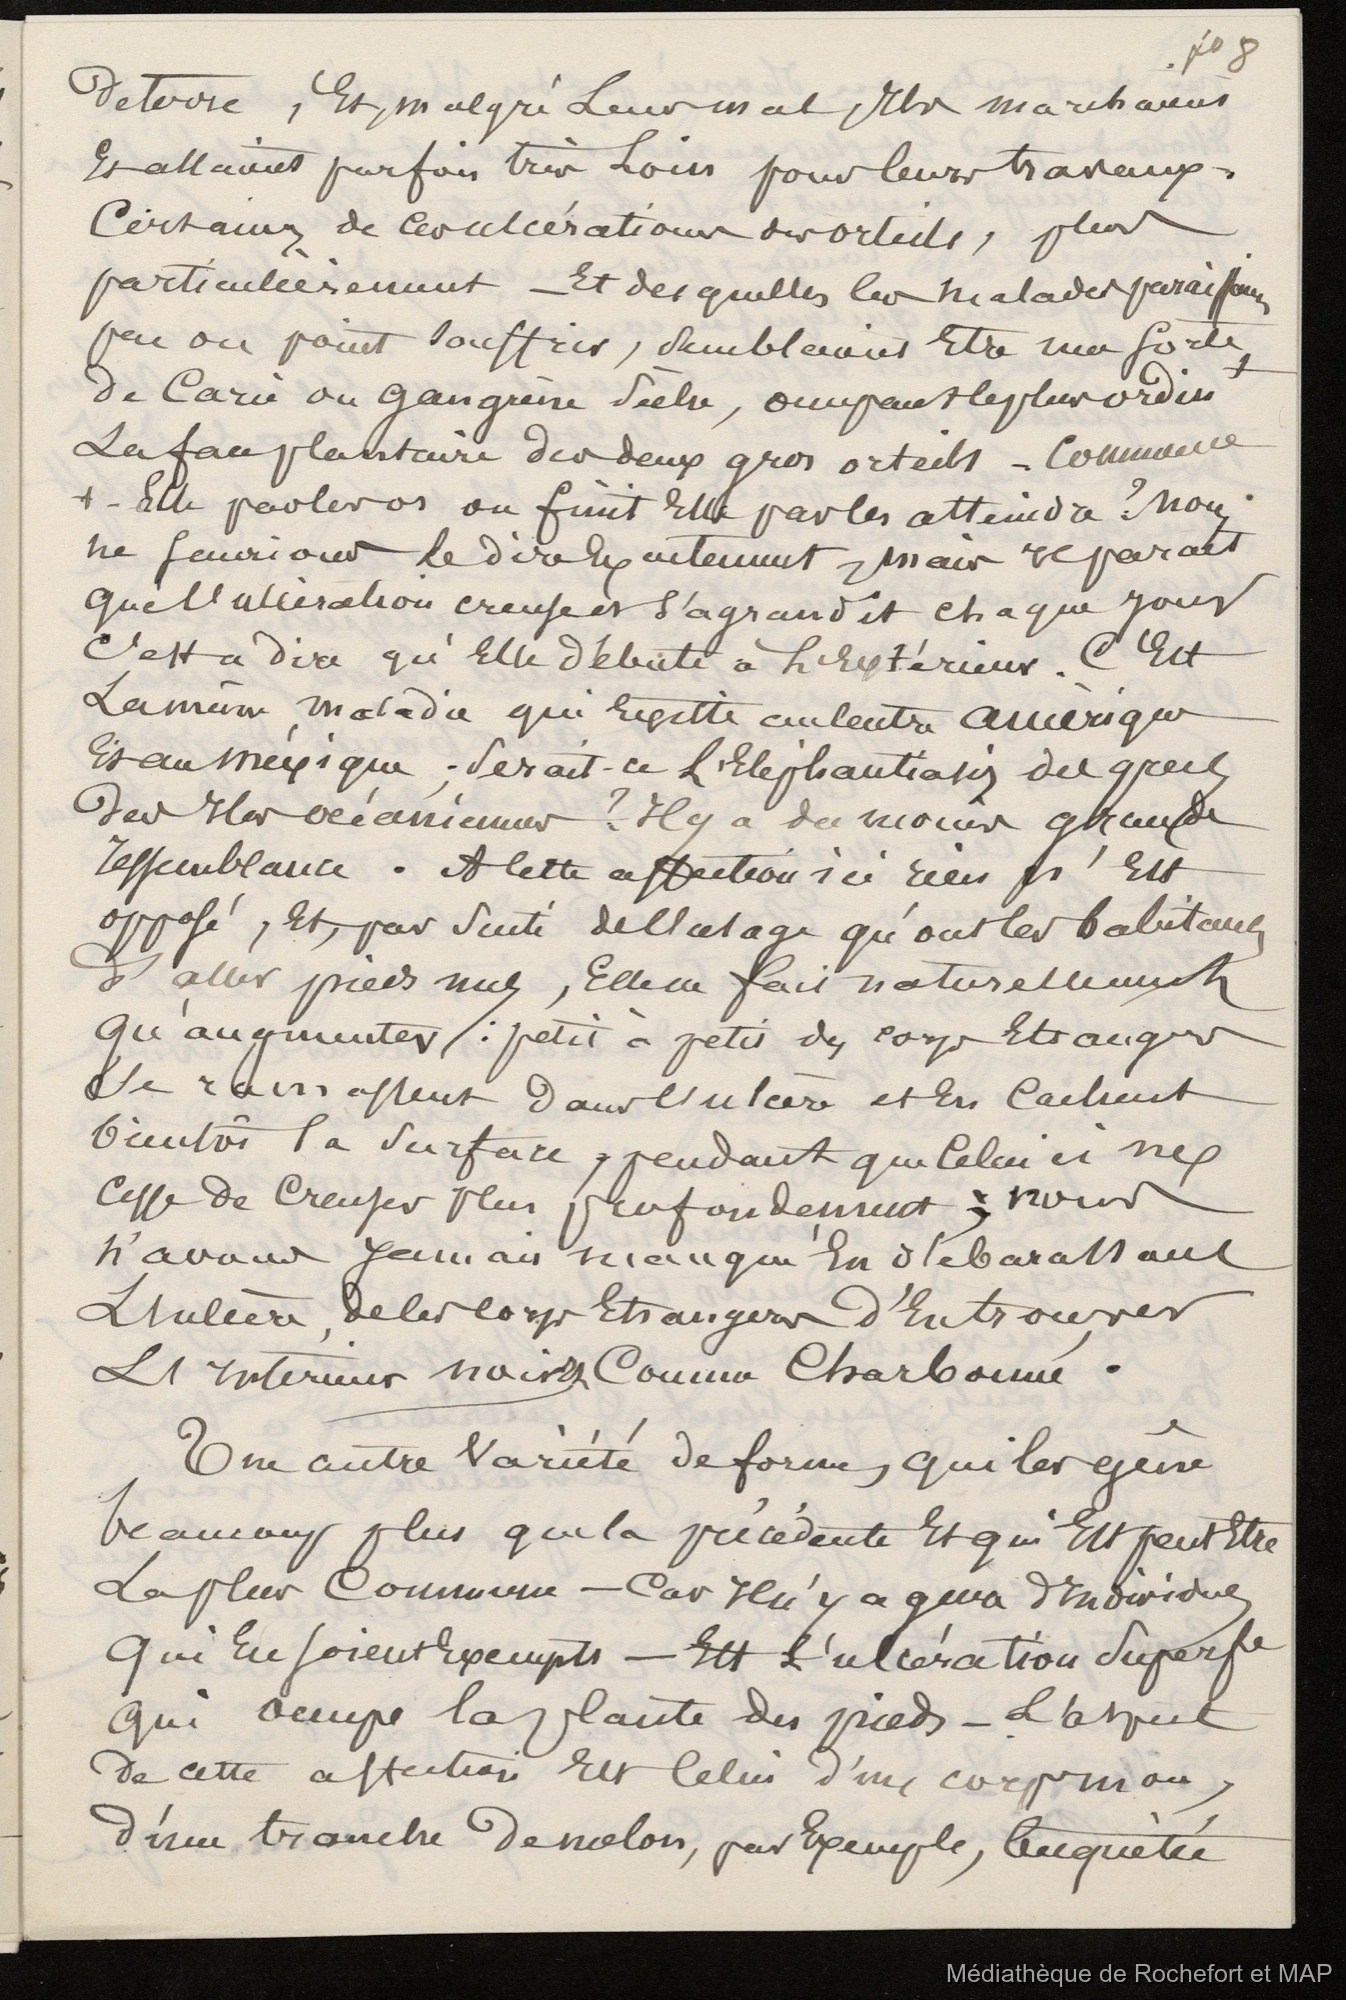 f° 8
de terre, Et, malgré Leur mal, Ils marchaient
Et allaient parfois très Loin pour leurs travaux.
Certaines de ces ulcérations des orteils, plus
particulièrement — Et desquelles les malades paraissaient
peu ou point souffrir, semblaient Etre une sorte
de Carie ou gangrène sèche, occupant le plus ordint
La face plantaire des deux gros orteils - Commence
t-Elle par les os ou finit Elle par les atteindre ? Nous
ne saurions le dire Exactement, mais il parait
que l'ulcération creuse et s'agrandit chaque jour
C'est a dire qu'Elle débute à L'Extérieur. C'Est
La même maladie qui Existe au Centre Amérique
Et au Méxique ; serait-ce L'Eléphantiasis des grecs
des Iles océaniennes ? Il y a du moins grande
ressemblance. A Cette affection ici rien n'Est
opposé, Et, par suite de l'usage qu'ont les habitants
d'aller pieds nus, Elle ne fait naturellement
qu'augmenter : petit à petit des corps Etrangers
se ramassent dans l'ulcère et En Cachent
bientôt la surface, pendant que Celui ci ne
Cesse de Creuser plus profondement ; nous
n'avons jamais manqué En débarassant
L'ulcère, de ces corps Etrangers d'En trouver
L'intérieur noir Comme Charbonné.
Une autre Variété de forme, qui les gêne
beaucoup plus que la précédente Et qui Est peut Etre
La plus Commune — Car Il n'y a guère d'Individus
qui En soient Exempts — Est L'ulcération superflle
qui occupe la plante des pieds - L'aspect
de cette affection Est Celui d'un corps mou,
d'une tranche de melon, par Exemple,
Médiathèque de Rochefort et MAP